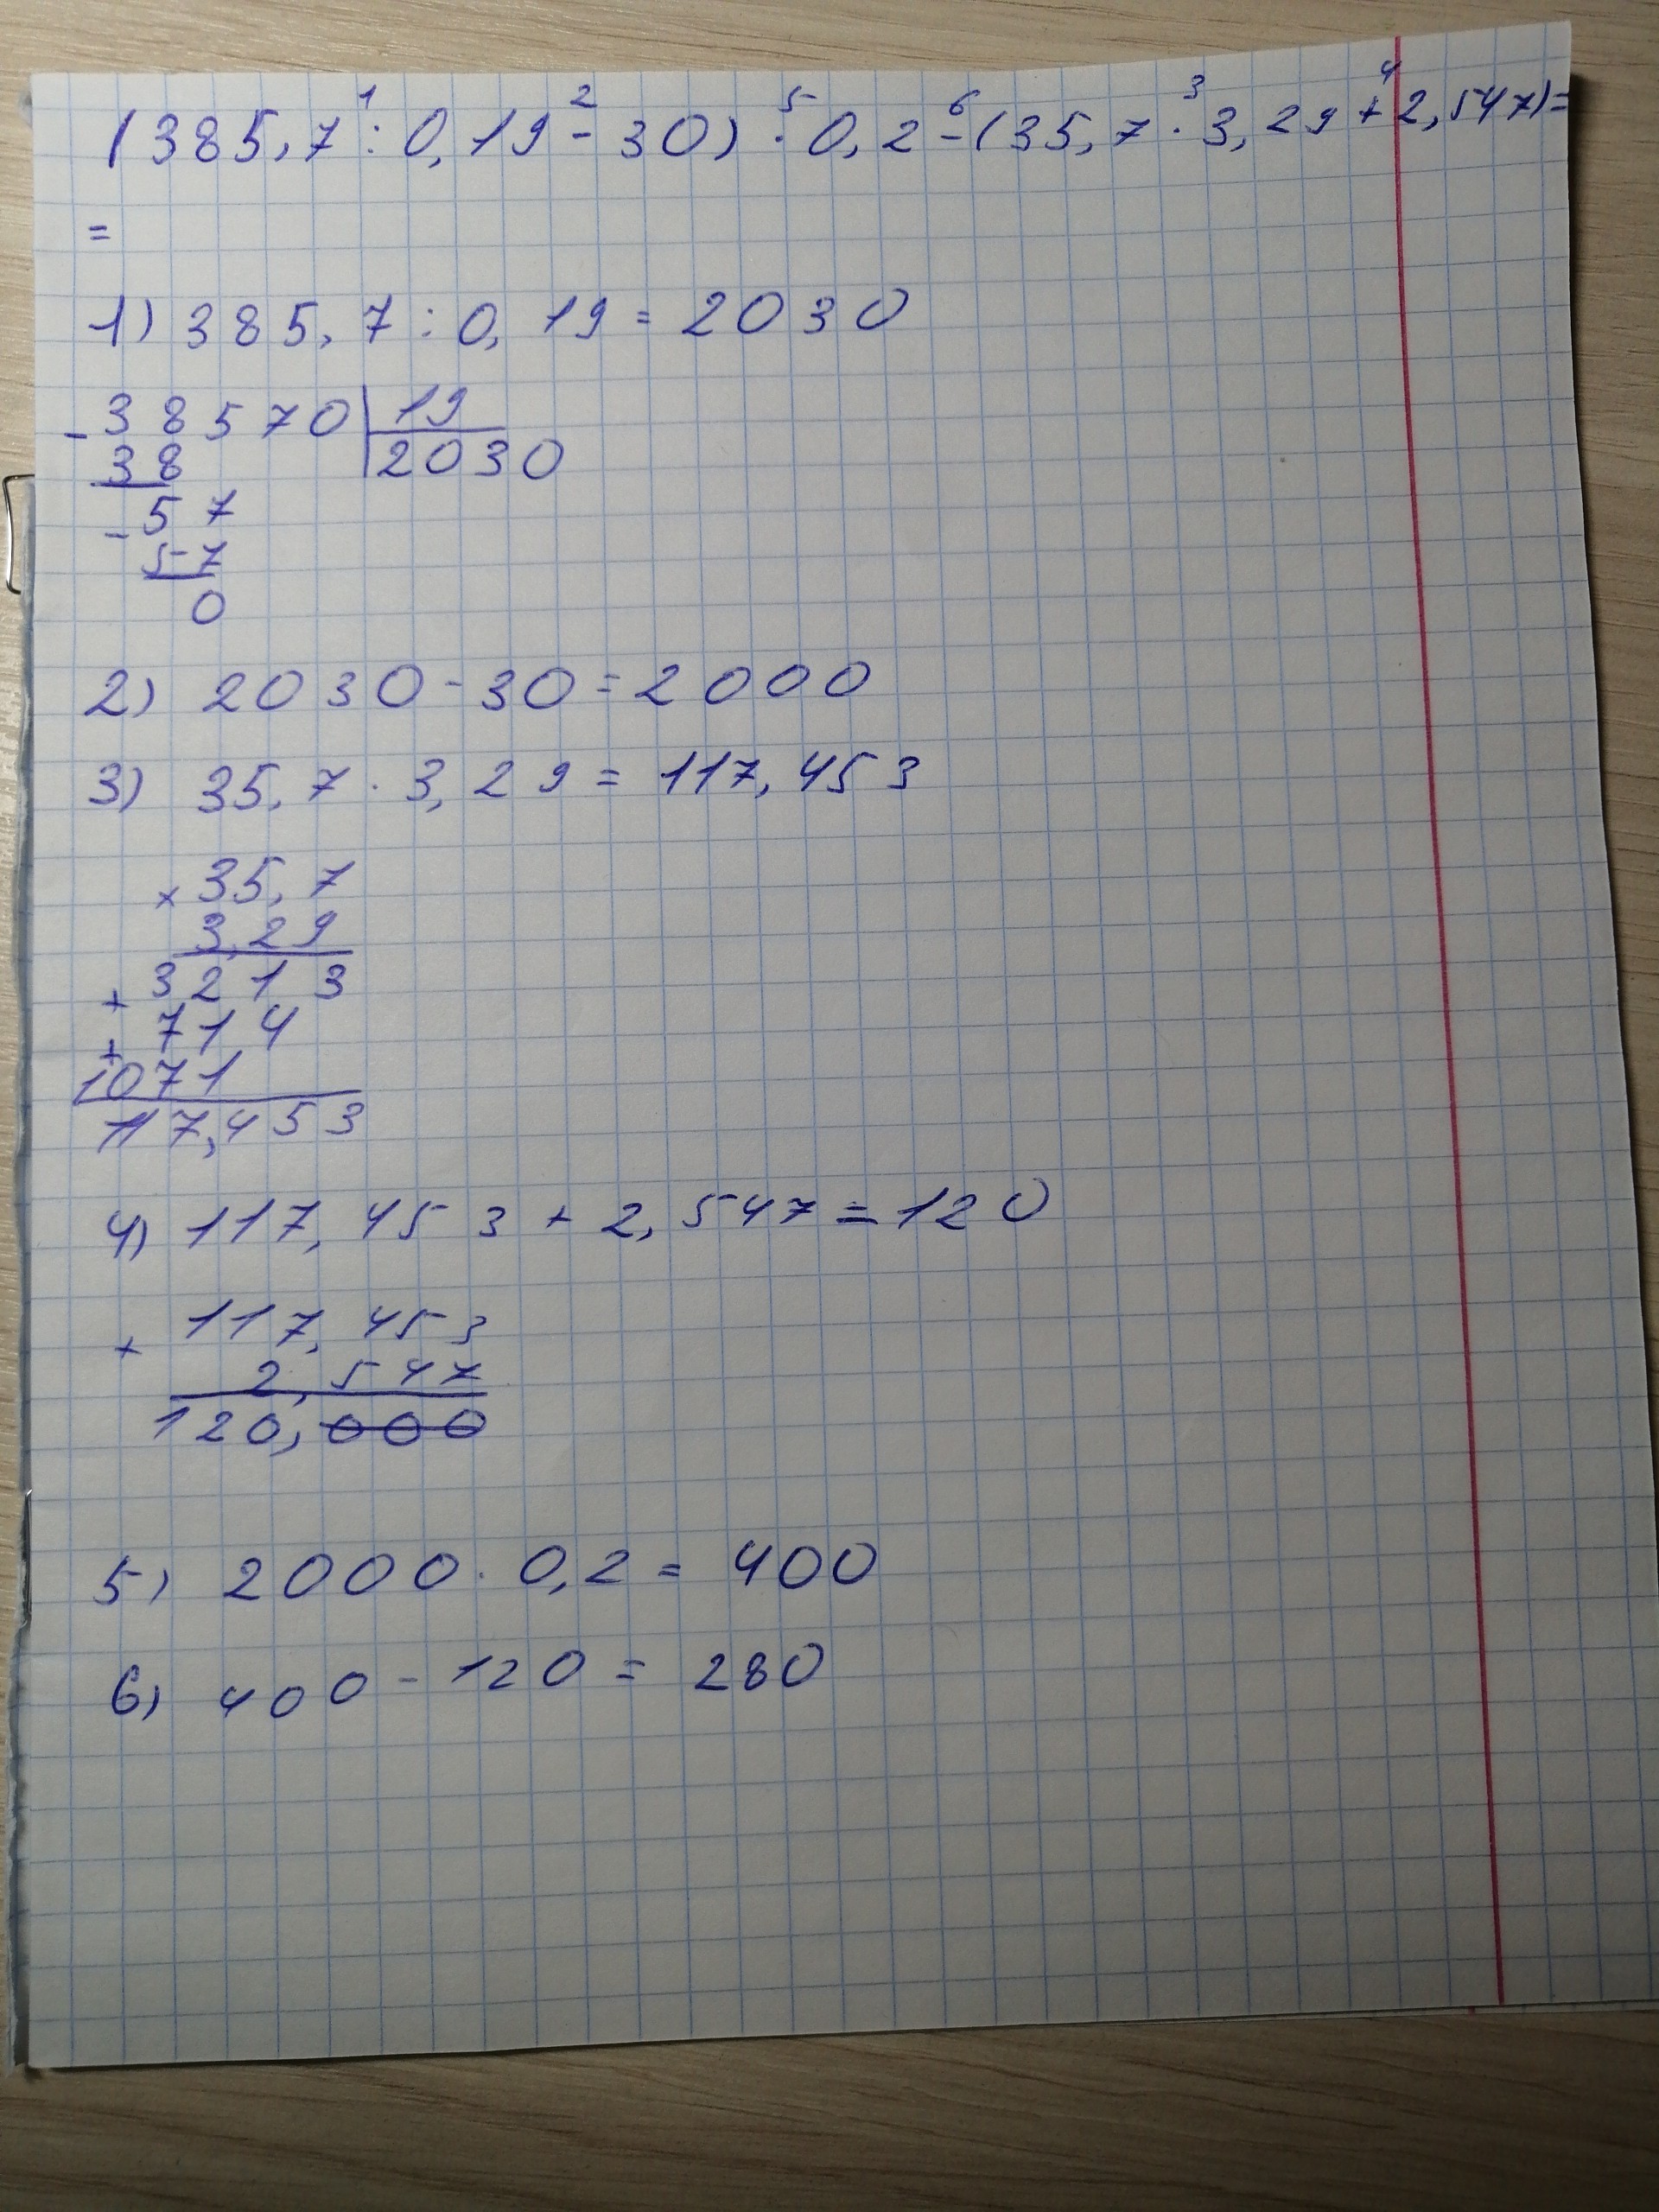 1 2 5 6 3 4
(385,7 : 0,19 - 30) · 0,2 - (35,7 · 3,29 + 2,547) =
=
1) 385,7 : 0,19 = 2030
- 38570 | 19
38 | 2030
- 57
57
0
2) 2030 - 30 = 2000
3) 35,7 · 3,29 = 117,453
× 35,7
3,29
+ 3213
+ 714
1071
117,453
4) 117,453 + 2,547 = 120
+ 117,453
2,547
120,000
5) 2000 · 0,2 = 400
6) 400 - 120 = 280